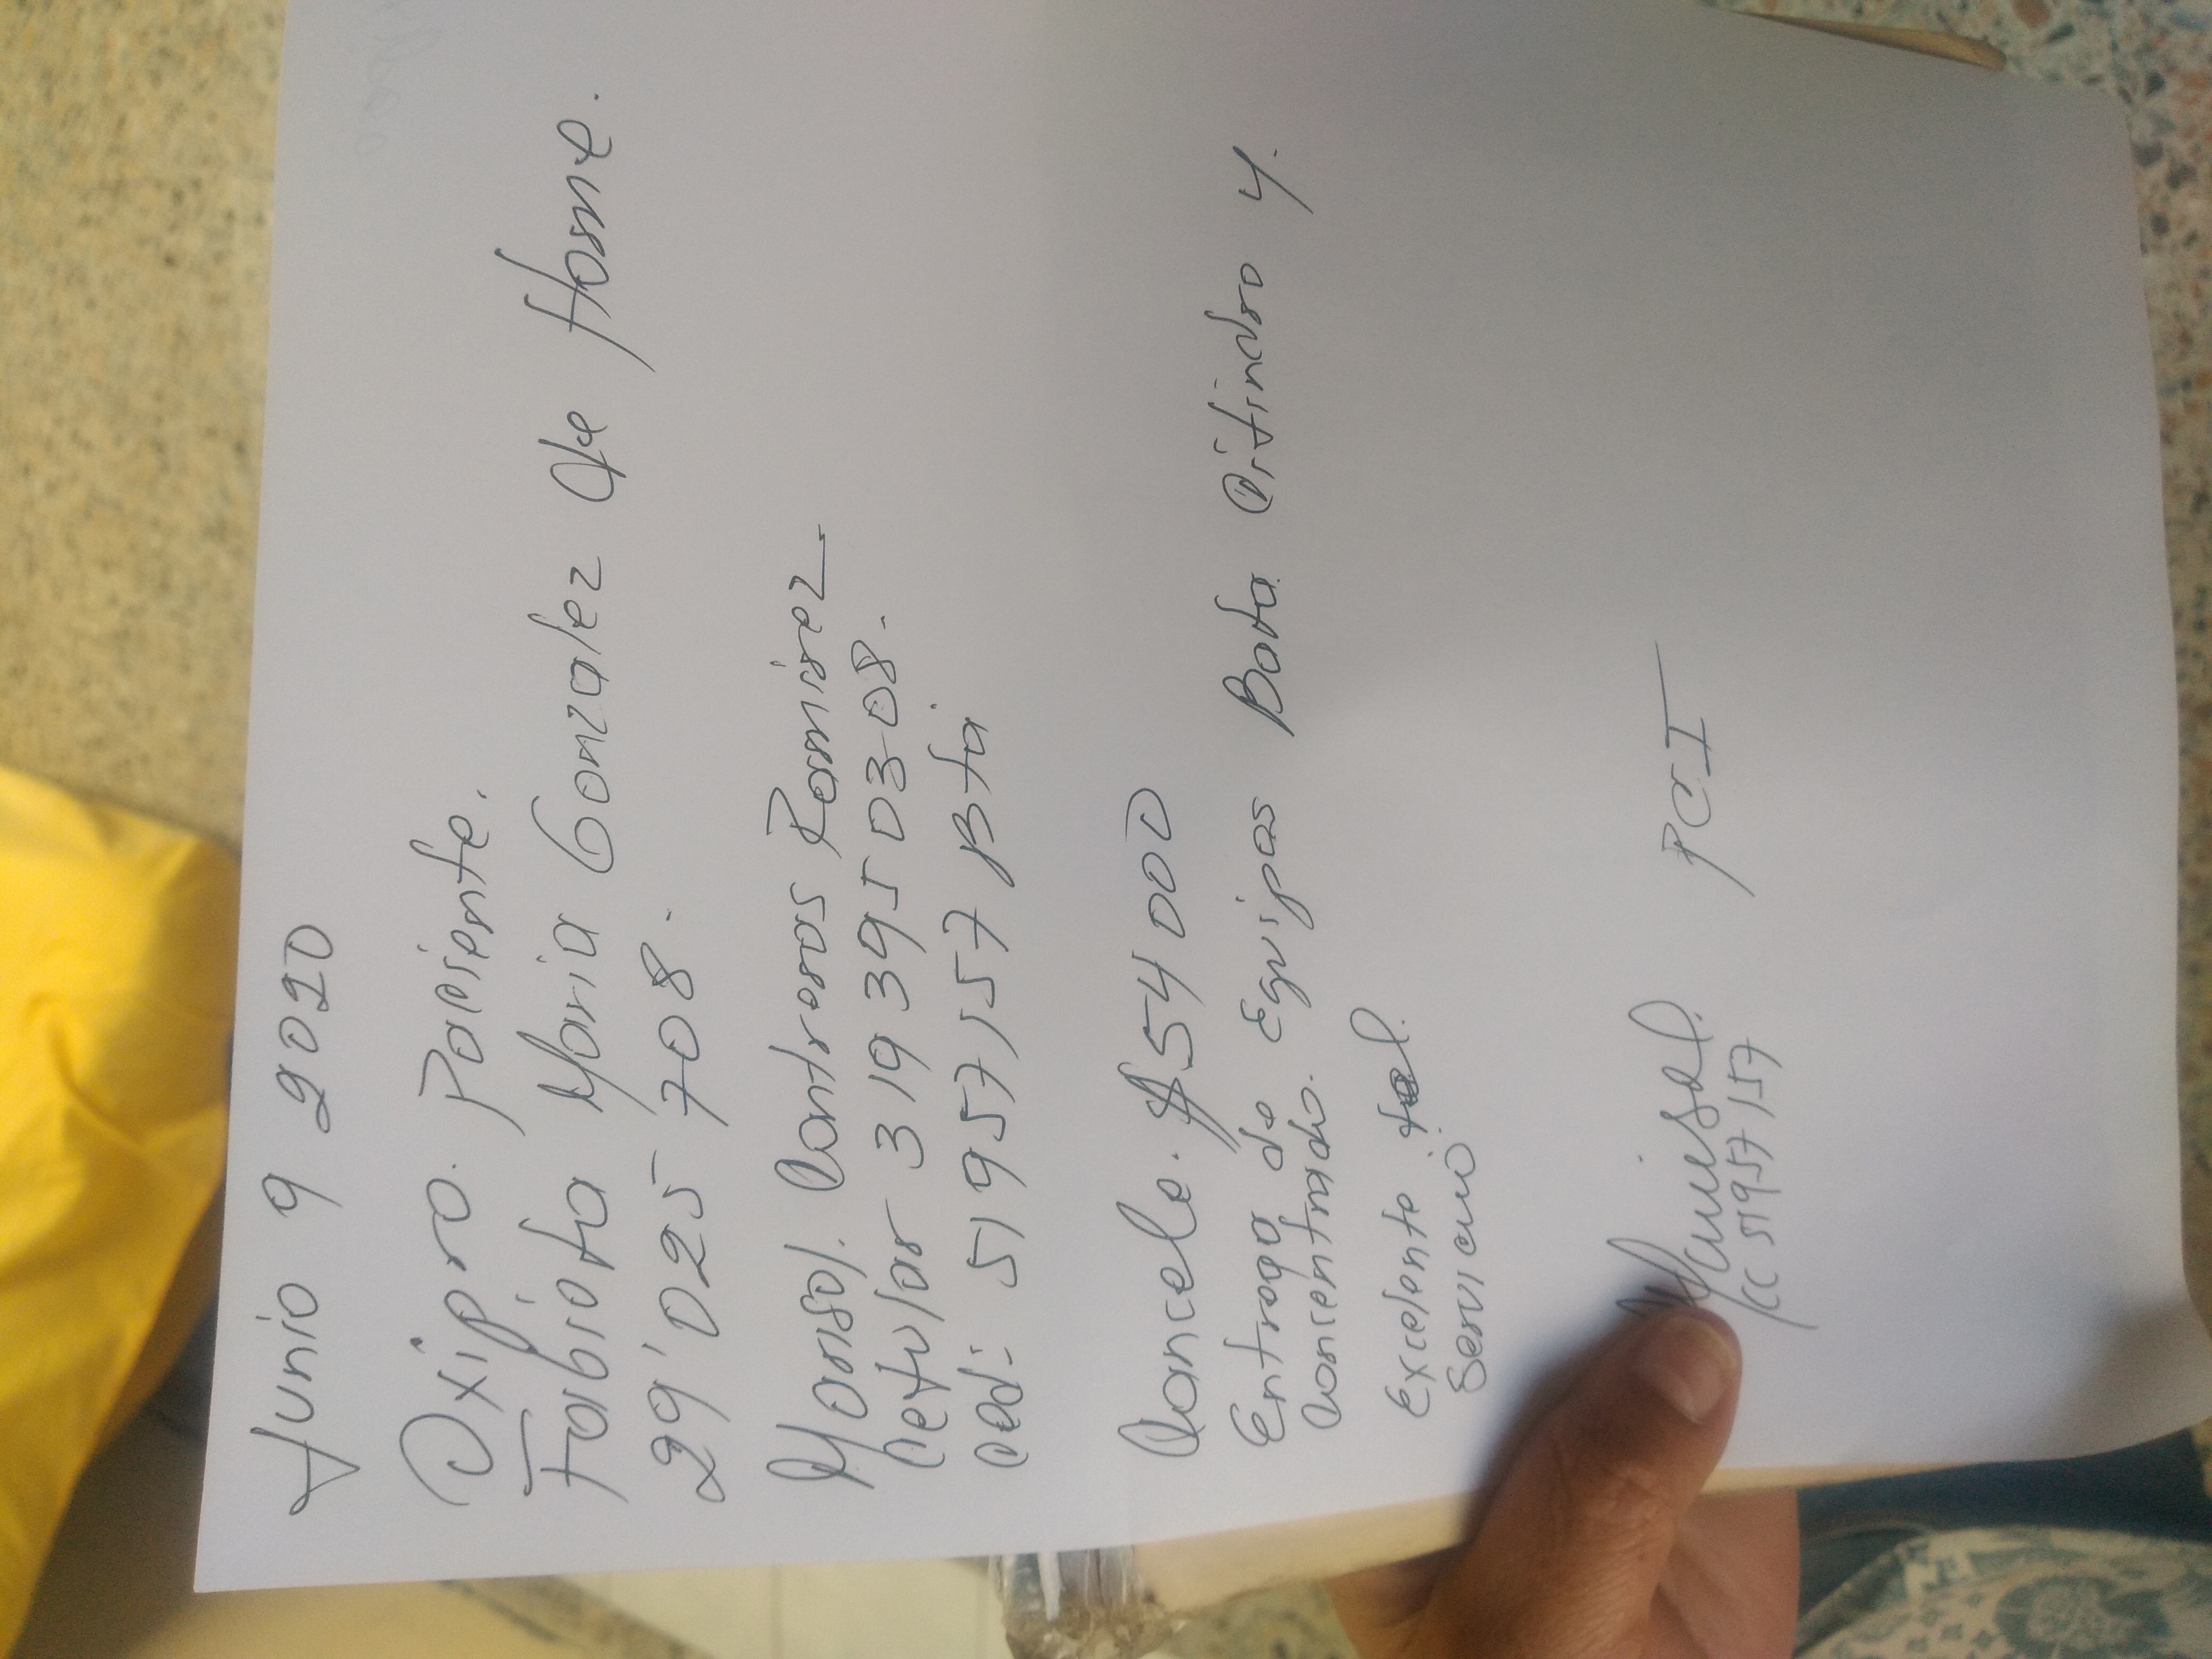 Junio 9 2020
Oxipro. Paciente.
Fabiola Maria Gonzalez de Home.
29'025708.
Marisol. Contreras Ramirez
Celular 319 395 0308.
Ced: 51957157 Bta
Cancele. $54000
Entrega de Equipos Bata Cilindro y.
Concentrado.
Excelente
Servicio.
CC 51957157